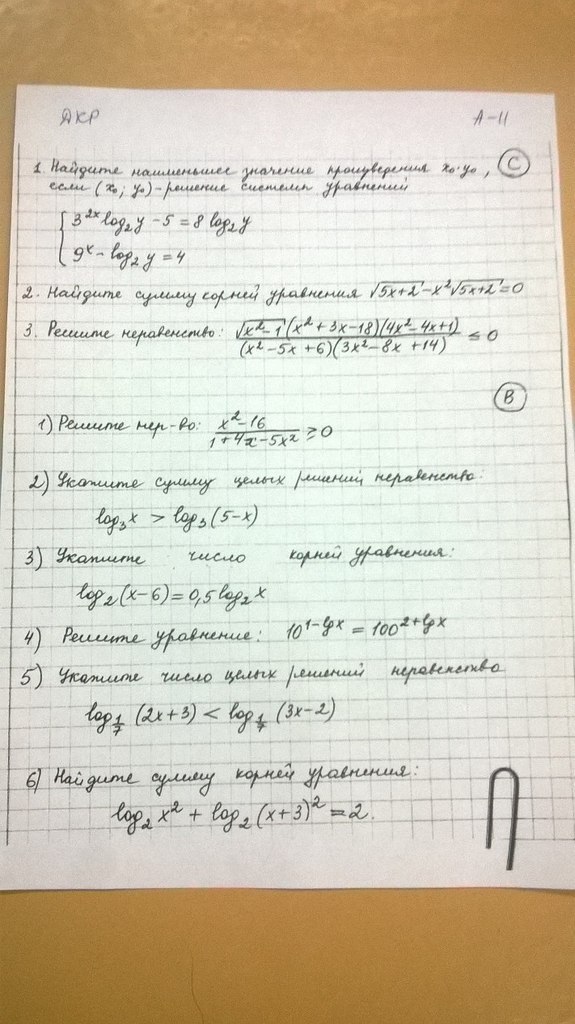 ДКР А-11
1. Найдите наименьшее значение произведения x₀·y₀, (С)
если (x₀; y₀) - решение системы уравнений
{ 3^(2x) log₂y - 5 = 8 log₂y
9^x - log₂y = 4
2. Найдите сумму корней уравнения √(5x+2) - x²√(5x+2) = 0
3. Решите неравенство: (√(x²-1)(x²+3x-18)(4x²-4x+1))/((x²-5x+6)(3x²-8x+14)) ≤ 0
(В)
1) Решите нер-во: (x²-16)/(1+4x-5x²) ≥ 0
2) Укажите сумму целых решений неравенства:
log₃x > log₃(5-x)
3) Укажите число корней уравнения:
log₂(x-6) = 0,5 log₂x
4) Решите уравнение: 10^(1-lg x) = 100^(2+lg x)
5) Укажите число целых решений неравенства
log_(1/7) (2x+3) < log_(1/7) (3x-2)
6) Найдите сумму корней уравнения:
log₂x² + log₂(x+3)² = 2.